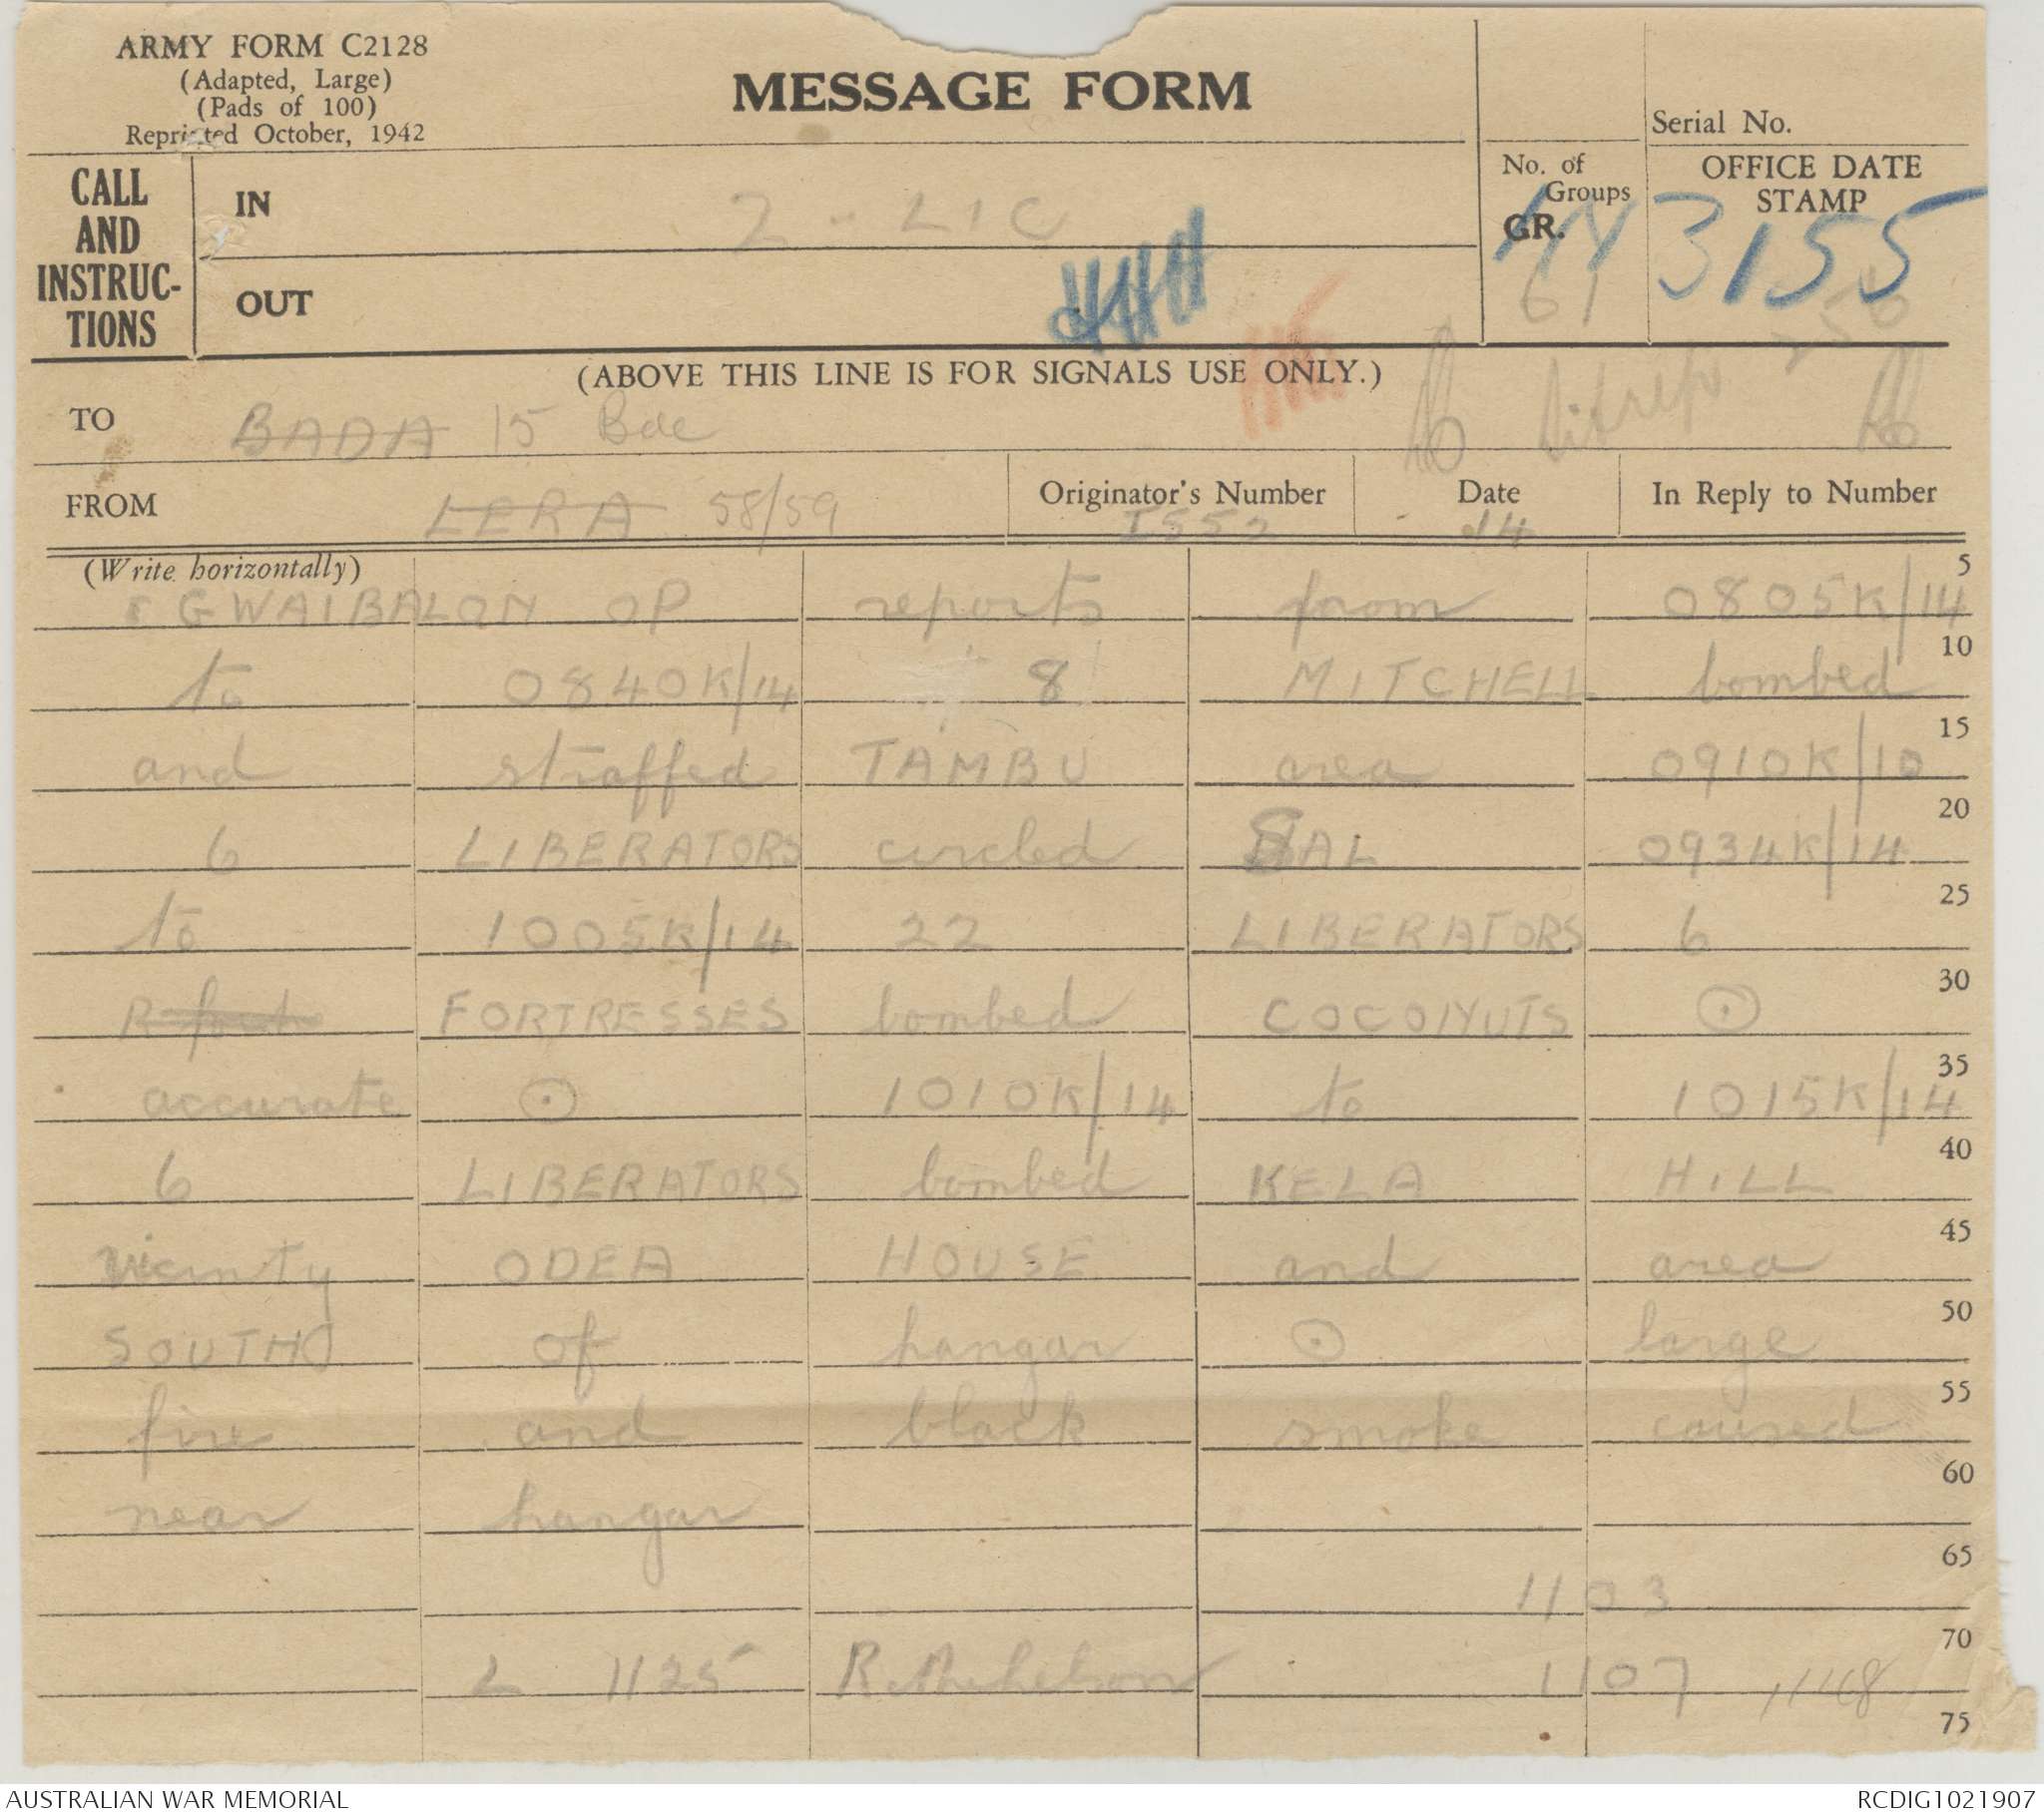 ARMY FORM C2128
(Adapted, Large)
(Pads of 100)
Reprinted October, 1942
MESSAGE FORM
Serial No.
CALL AND INSTRUC-TIONS
IN Z - LIC
OUT
No. of Groups
GR. 61
OFFICE DATE STAMP
3155
(ABOVE THIS LINE IS FOR SIGNALS USE ONLY.)
TO BADA 15 Bde Sitrep
FROM LERA 58/59
Originator's Number I552
Date 14
In Reply to Number
(Write horizontally)
GWAIBALON OP reports from 0805K/14 5
to 0840K/14 8 MITCHELL bombed 10
and straffed TAMBU area 0910K/10 15
6 LIBERATORS circled SAL 0934K/14 20
to 1005K/14 22 LIBERATORS 6 25
FORTRESSES bombed COCONUTS ⊙ 30
accurate ⊙ 1010K/14 to 1015K/14 35
6 LIBERATORS bombed KELA HILL 40
vicinty ODEA HOUSE and area 45
SOUTH of hangar ⊙ large 50
fire and black smoke caused 55
near hangar 60
1103 65
L 1125 1107 70
75
AUSTRALIAN WAR MEMORIAL
RCDIG1021907